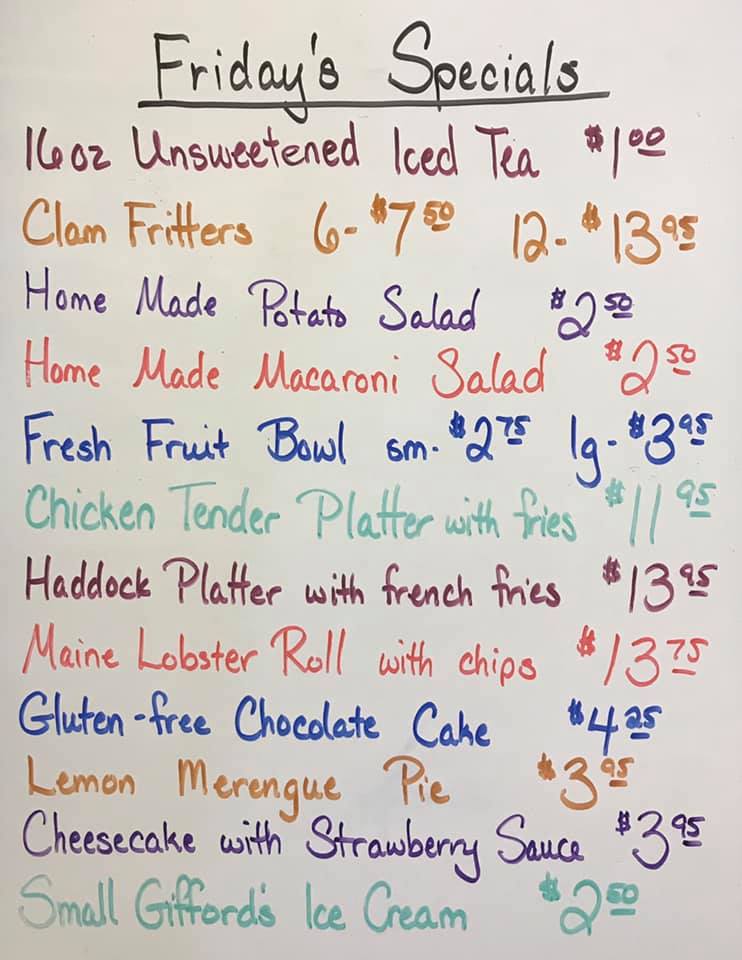 Friday's Specials
16oz Unsweetened Iced Tea $1.00
Clam Fritters 6- $7.50 12- $13.95
Home Made Potato Salad $2.50
Home Made Macaroni Salad $2.50
Fresh Fruit Bowl sm- $2.75 lg- $3.95
Chicken Tender Platter with fries $11.95
Haddock Platter with french fries $13.95
Maine Lobster Roll with chips $13.75
Gluten-free Chocolate Cake $4.25
Lemon Merengue Pie $3.95
Cheesecake with Strawberry Sauce $3.95
Small Gifford's Ice Cream $2.50